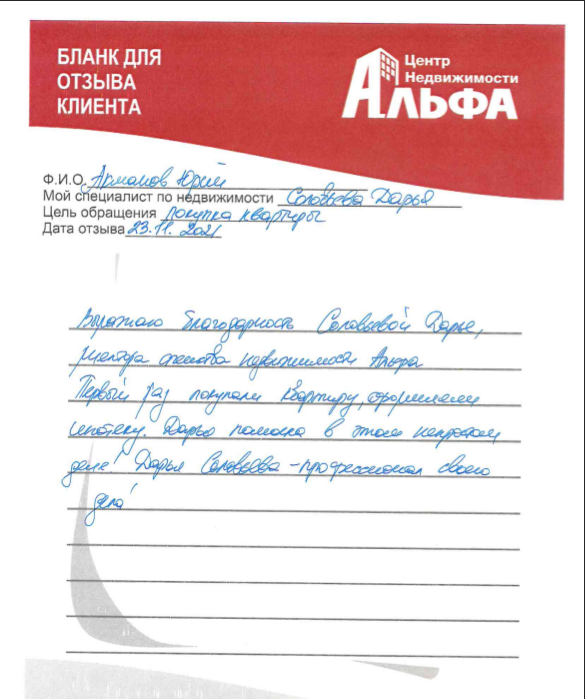 БЛАНК ДЛЯ
ОТЗЫВА
КЛИЕНТА
Центр
Недвижимости
АЛЬФА
Ф.И.О. Арманов Юрий
Мой специалист по недвижимости Соловьева Дарья
Цель обращения покупка квартиры
Дата отзыва 23.11.2021
Выражаю благодарность Соловьевой Дарье,
недвижимости Альфа
Первый раз покупали квартиру, оформляли
ипотеку. Дарья помогла в этом непростом
деле! Дарья Соловьева - профессионал своего
дела!